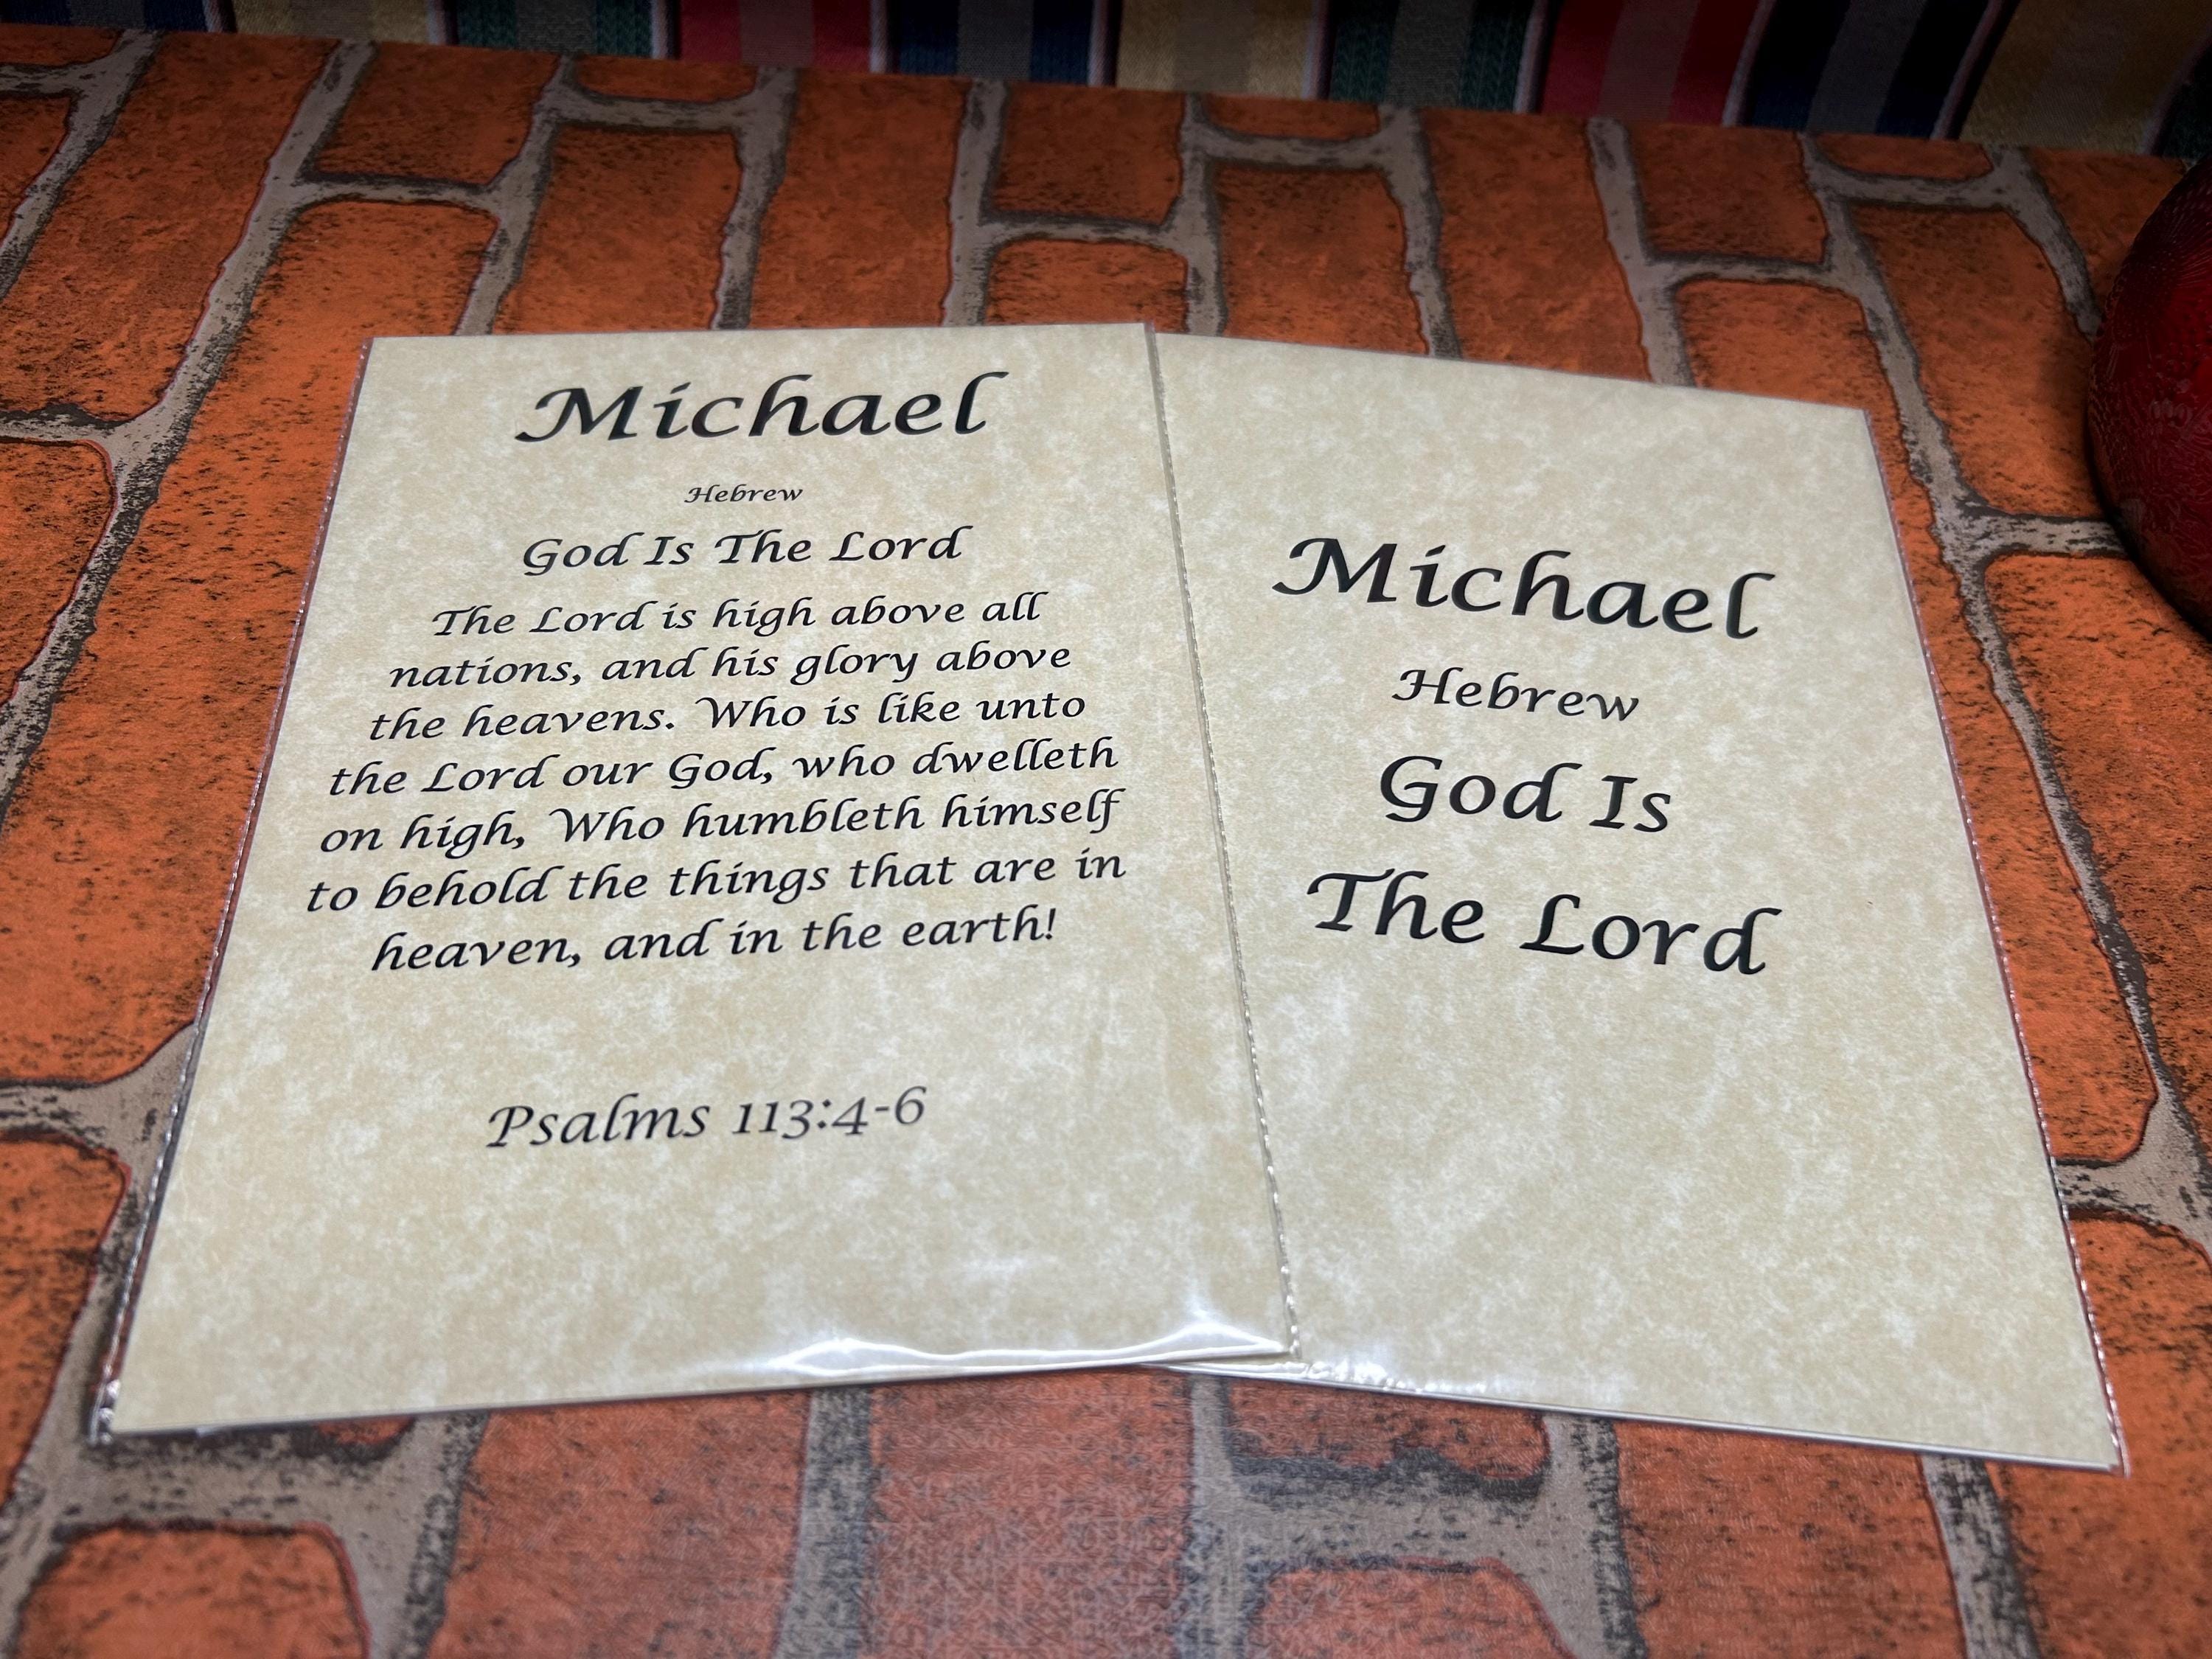 Michael
Hebrew
God Is The Lord
The Lord is high above all
nations, and his glory above
the heavens. Who is like unto
the Lord our God, who dwelleth
on high, Who humbleth himself
to behold the things that are in
heaven, and in the earth!
Psalms 113:4-6
Michael
Hebrew
God Is
The Lord